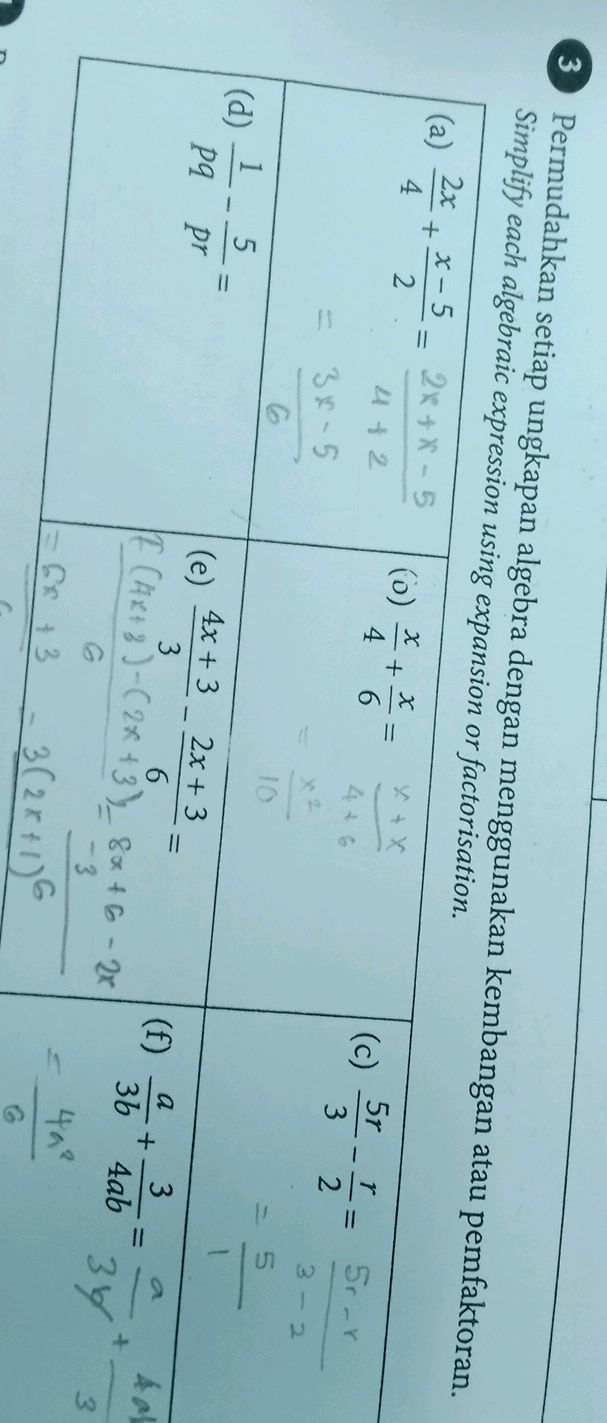 3 Permudahkan setiap ungkapan algebra dengan menggunakan kembangan atau pemfaktoran.
Simplify each algebraic expression using expansion or factorisation.
(a) 2x/4 + x - 5/2 = 2x + x - 5/4 + 2
= 3x - 5/6
(b) x/4 + x/6 = x + x/4 + 6
= x²/10
(c) 5r/3 - r/2 = 5r - r/3 - 2
= 5/1
(d) 1/pq - 5/pr =
(e) 4x + 3/3 - 2x + 3/6 =
2(4x+3) - (2x+3)/6 = 8x + 6 - 2x - 3/6
= 6x + 3 - 3(2x+1)
(f) a/3b + 3/4ab = a/3b +
= 4a²/6